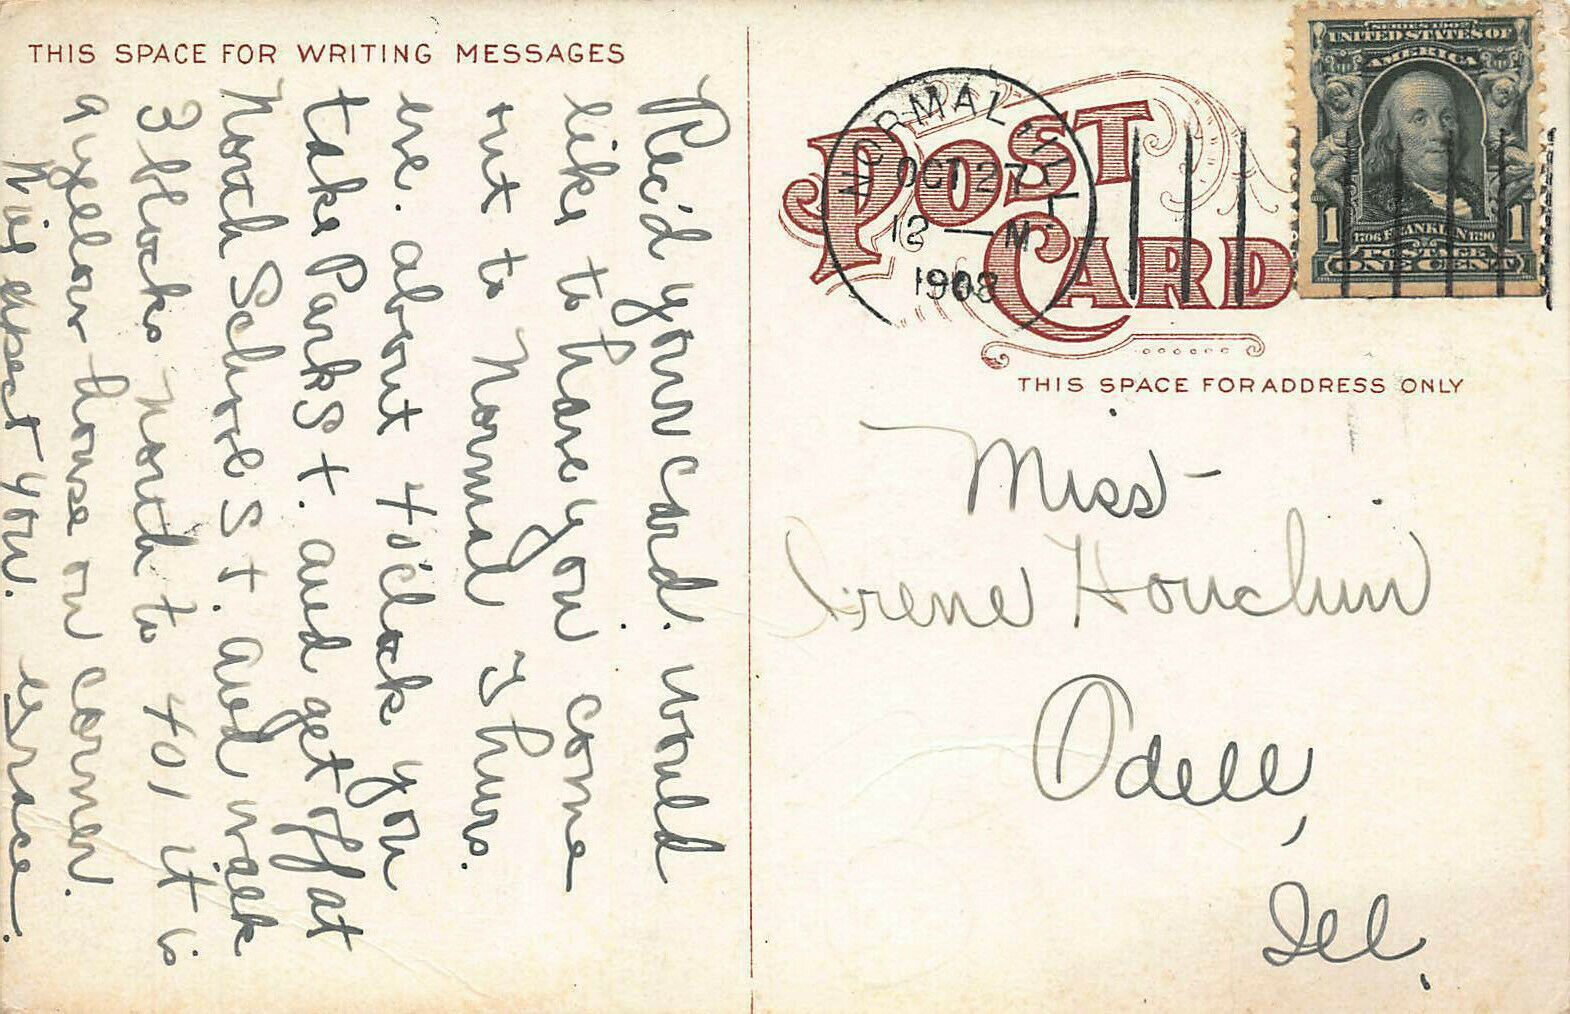 THIS SPACE FOR WRITING MESSAGES
Rec'd your card. would
like to have you come
out to Normal Thurs.
eve. about 4 o'clock you
take Park St. and get off at
North School St. and walk
3 blocks North to 401 it is
a yellow house on corner.
Will expect you. Grace.
POST
CARD
NORMAL, ILL.
OCT 27
12 - M
1908
SERIES 1902
UNITED STATES OF
AMERICA
1 1
1706 FRANKLIN 1790
POSTAGE
ONE CENT
THIS SPACE FOR ADDRESS ONLY
Miss
Irene Houchin
Odell,
Ill.